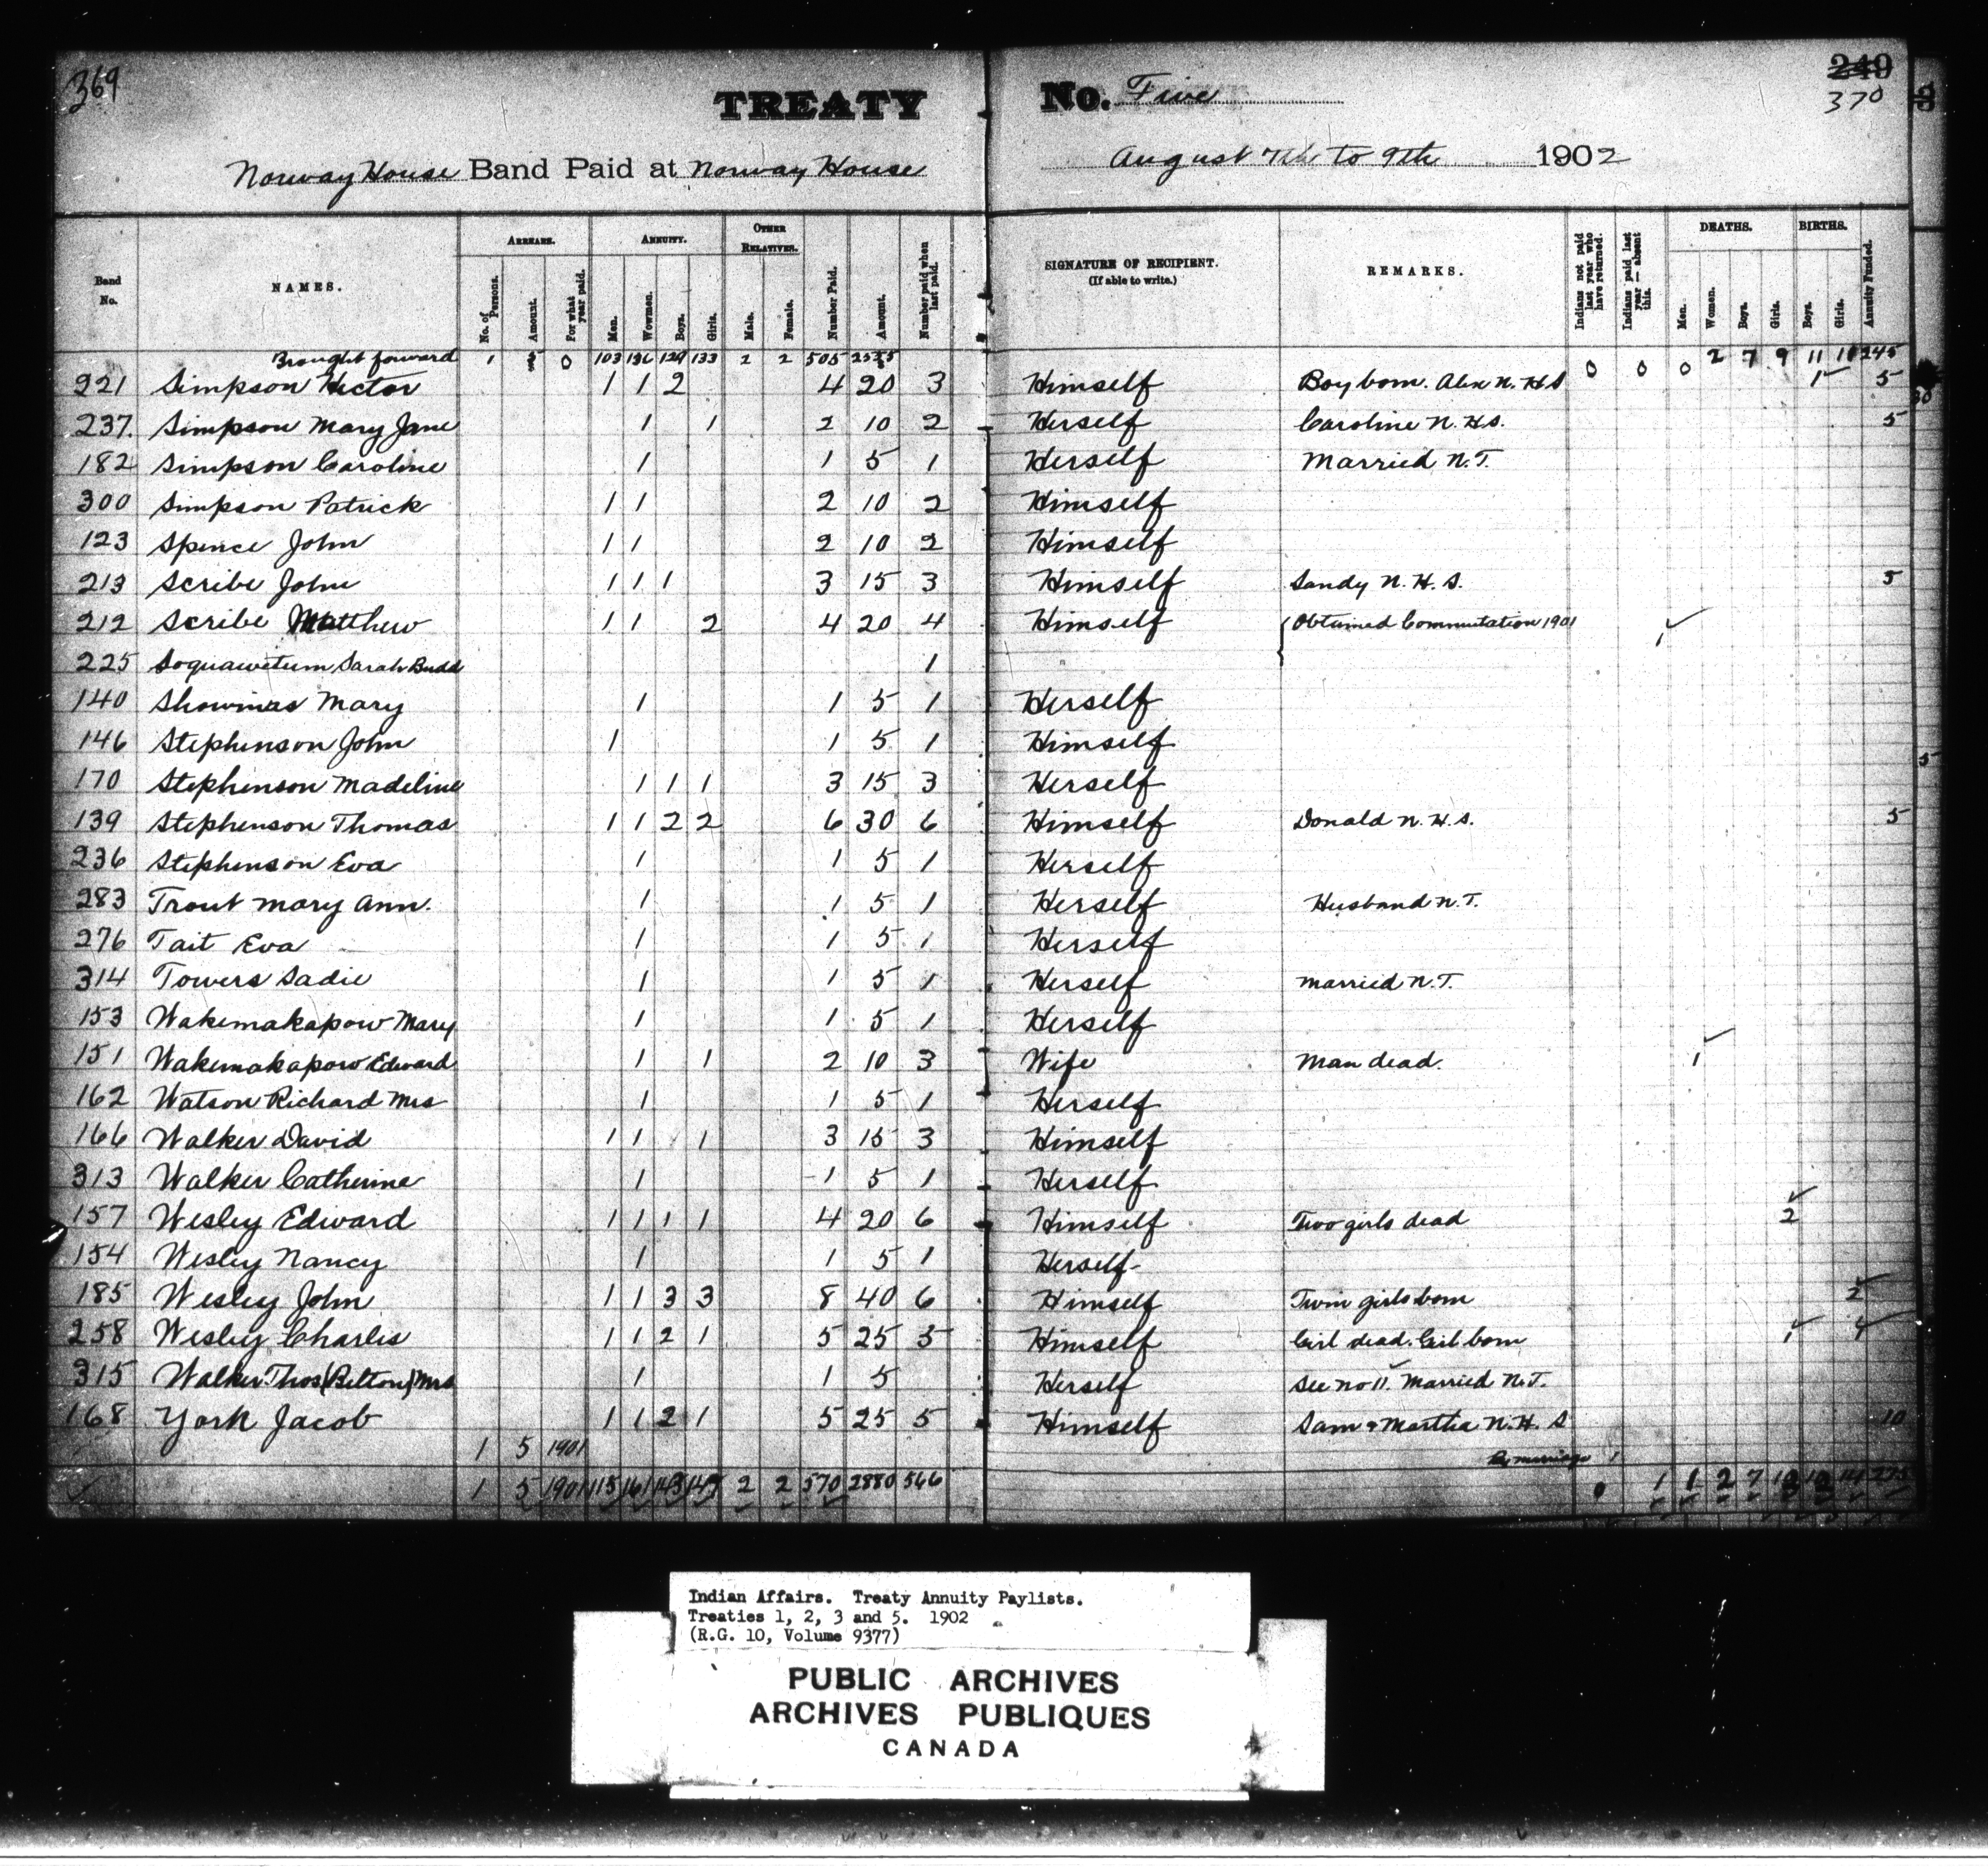 369
249
370
TREATY No. Five
Norway House Band Paid at Norway House August 7th to 9th 1902
Band No. NAMES. ARREARS. No. of Persons. Amount. For what year paid. ANNUITY. Men. Women. Boys. Girls. OTHER RELATIVES. Male. Female. Number Paid. Amount. Number paid when last paid. SIGNATURE OF RECIPIENT. (If able to write.) REMARKS. Indians not paid last year who have returned. Indians paid last year — absent this. DEATHS. Men. Women. Boys. Girls. BIRTHS. Boys. Girls. Annuity Funded.
Brought forward 1 5 0 103 136 129 133 2 2 505 2535 0 0 0 2 7 9 11 11 245
221 Simpson Hector 1 1 2 4 20 3 Himself Boy born. Alex N. H. S 1 5
237. Simpson Mary Jane 1 1 2 10 2 Herself Caroline N. H. S. 5
182 Simpson Caroline 1 1 5 1 Herself Married N. T.
300 Simpson Patrick 1 1 2 10 2 Himself
123 Spence John 1 1 2 10 2 Himself
213 Scribe John 1 1 1 3 15 3 Himself Sandy N. H. S. 5
212 Scribe Matthew 1 1 2 4 20 4 Himself Obtained Commutation 1901 1
225 Soquawetum Sarah Budd 1
140 Showinas Mary 1 1 5 1 Herself
146 Stephenson John 1 1 5 1 Himself
170 Stephenson Madeline 1 1 1 3 15 3 Herself
139 Stephenson Thomas 1 1 2 2 6 30 6 Himself Donald N. H. S. 5
236 Stephenson Eva 1 1 5 1 Herself
283 Trout Mary Ann. 1 1 5 1 Herself Husband N. T.
276 Tait Eva 1 1 5 1 Herself
314 Towers Sadie 1 1 5 1 Herself Married N. T.
153 Wakemakapow Mary 1 1 5 1 Herself
151 Wakemakapow Edward 1 1 2 10 3 Wife Man dead. 1
162 Watson Richard Mrs 1 1 5 1 Herself
166 Walker David 1 1 1 3 15 3 Himself
313 Walker Catherine 1 1 5 1 Herself
157 Wesley Edward 1 1 1 1 4 20 6 Himself Two girls dead 2
154 Wesley Nancy 1 1 5 1 Herself
185 Wesley John 1 1 3 3 8 40 6 Himself Twin girls born 2
258 Wesley Charles 1 1 2 1 5 25 5 Himself Girl dead. Girl born 1 1
315 Walker Thos (Belton) Mrs 1 1 5 Herself See No 11. Married N. T.
168 York Jacob 1 1 2 1 5 25 5 Himself Sam & Martha N. H. S 10
1 5 1901 By marriage 1
1 5 1901 115 161 143 147 2 2 570 2880 566 0 1 1 2 7 12 12 14 275
Indian Affairs. Treaty Annuity Paylists.
Treaties 1, 2, 3 and 5. 1902
(R.G. 10, Volume 9377)
PUBLIC ARCHIVES
ARCHIVES PUBLIQUES
CANADA